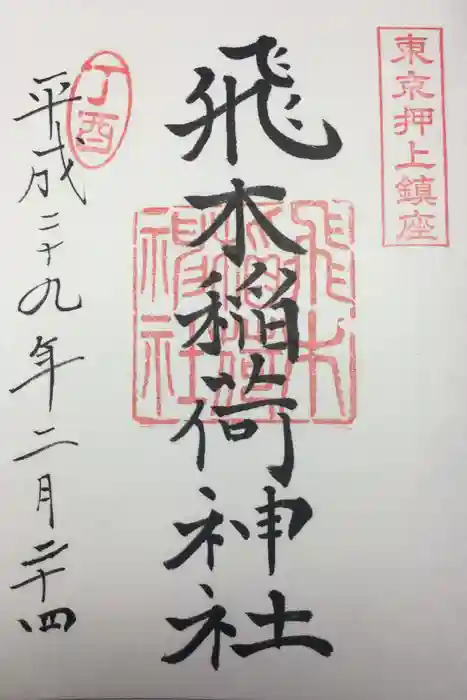 東京押上鎮座
飛木稲荷神社
飛木稲荷神社
丁酉
平成二十九年二月二十四